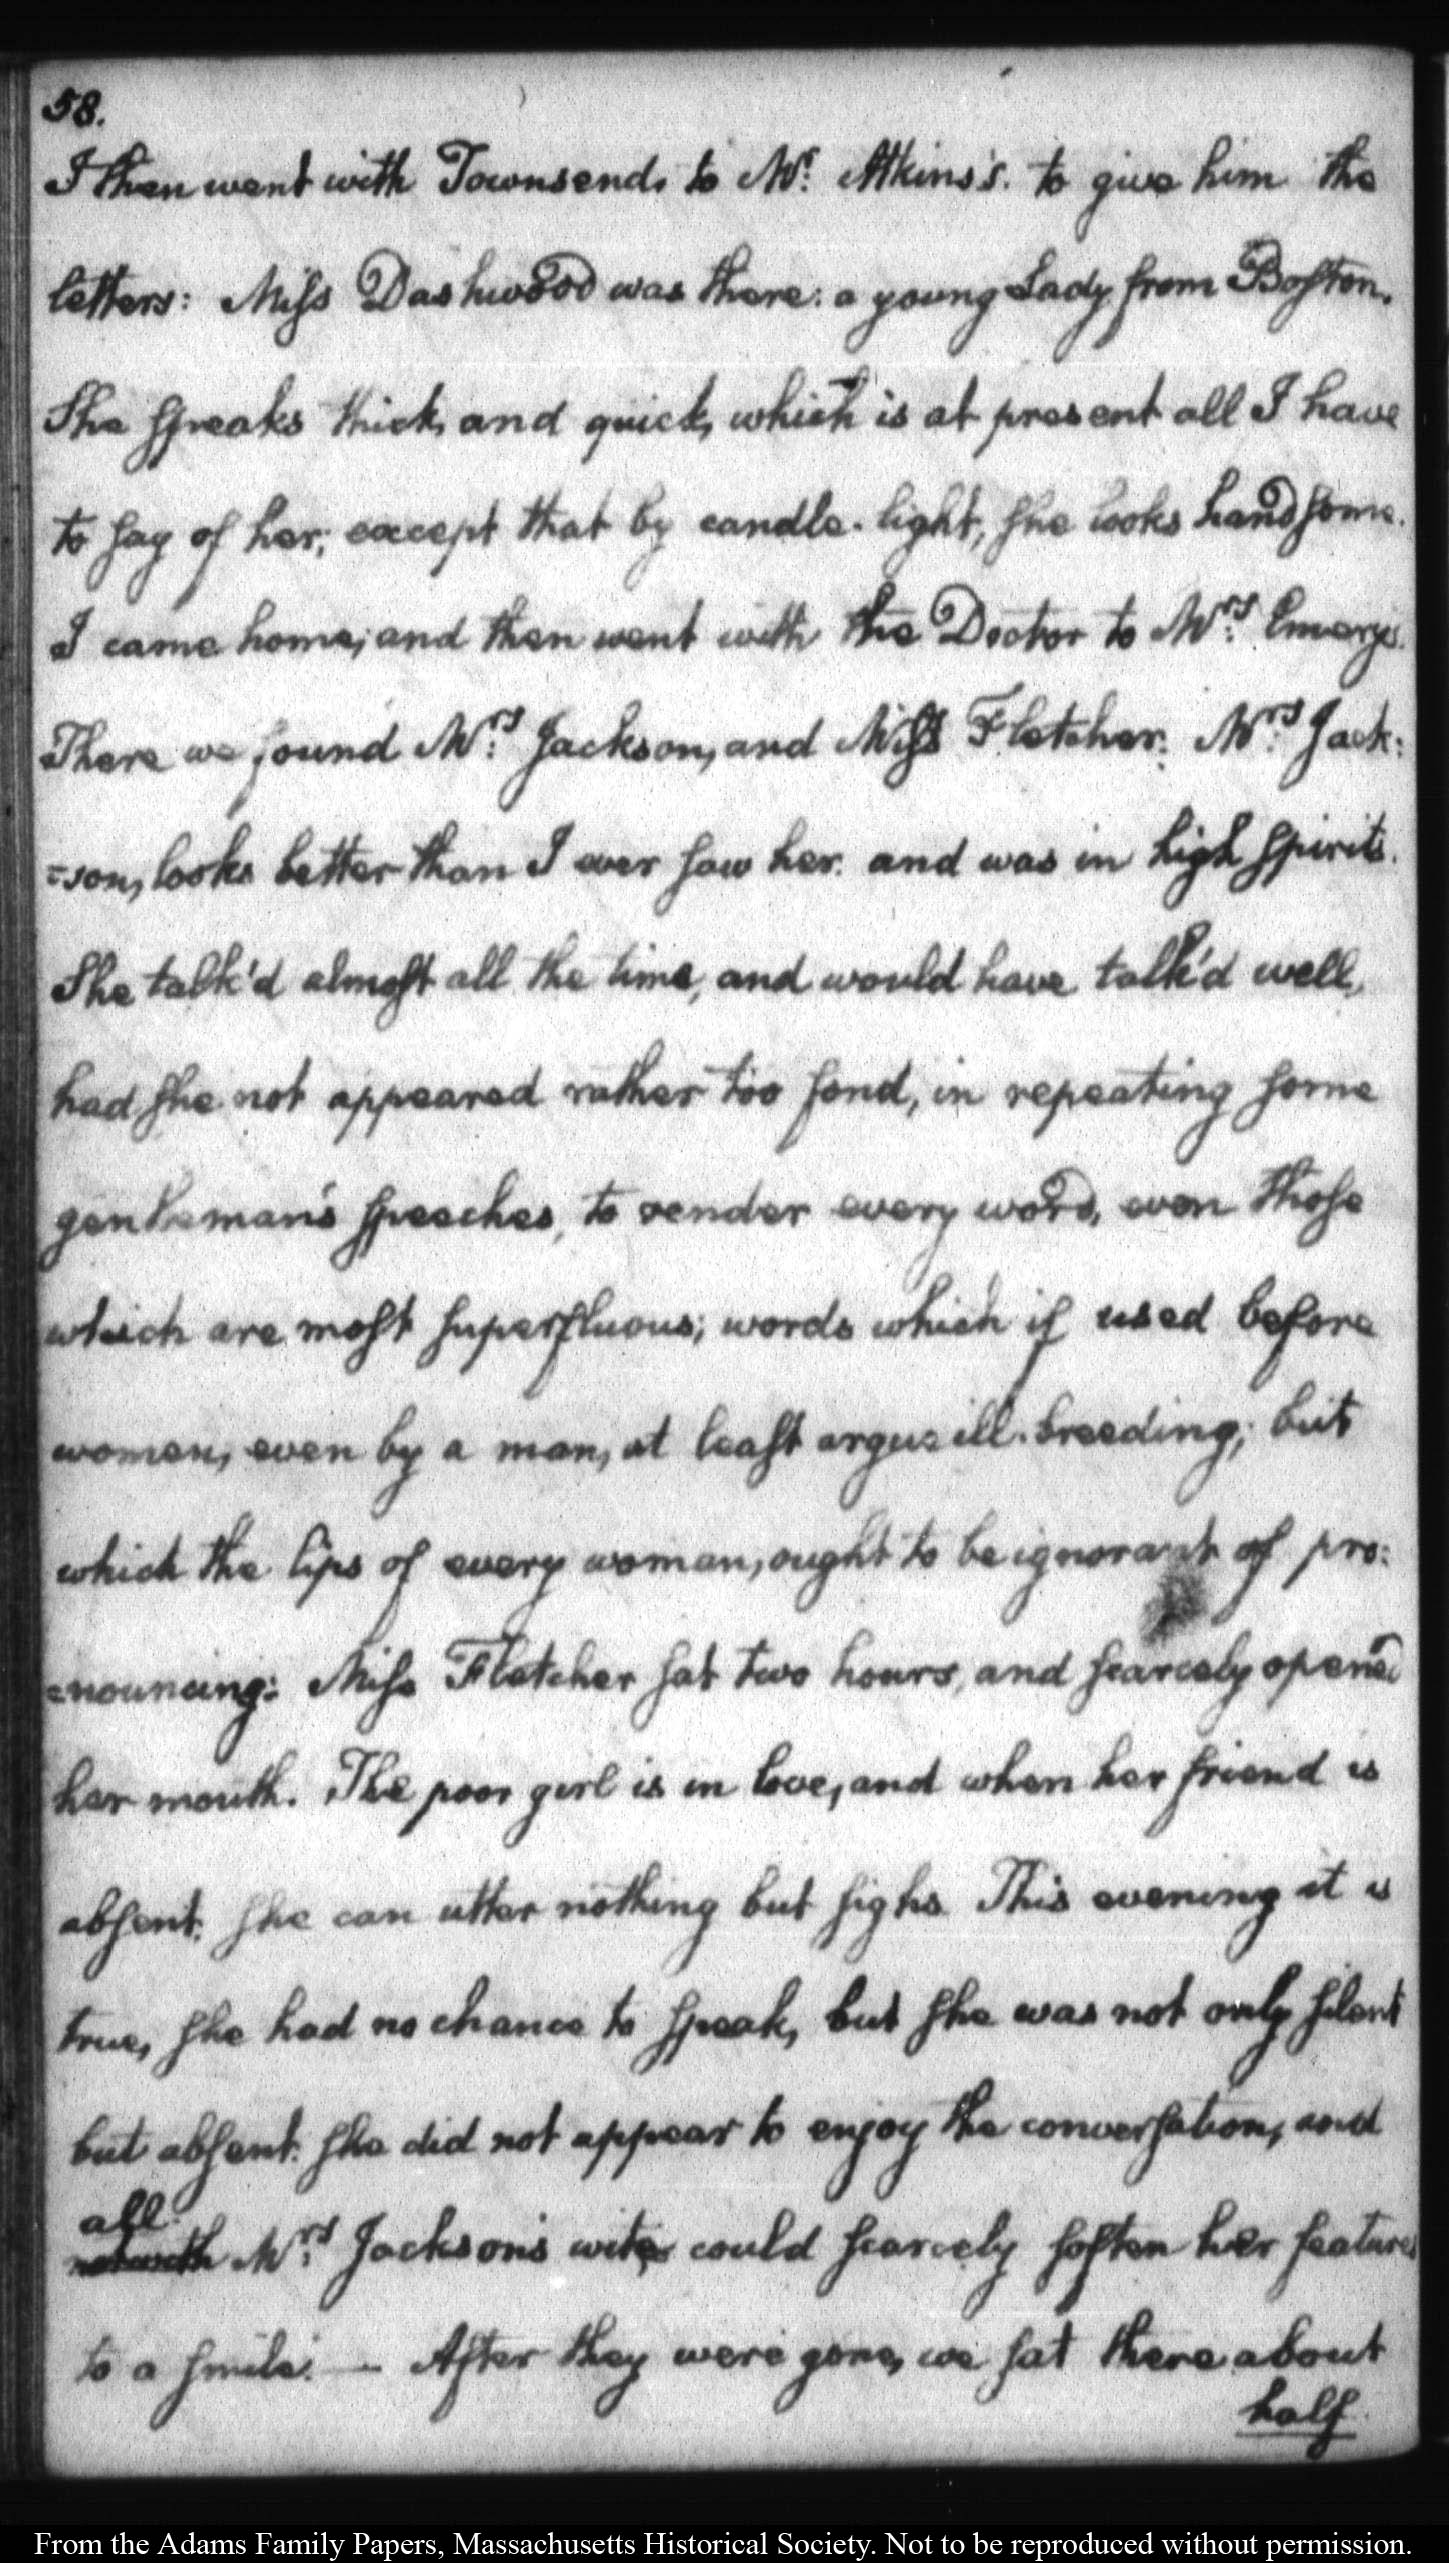 58.
I then went with Townsend, to Mr: Atkins's. to give him the
letters: Miss Dashwood was there: a young Lady from Boston.
She speaks thick, and quick, which is at present all I have
to say of her; except that by candle-light, she looks handsome.
I came home; and then went with the Doctor to Mrs: Emery's.
There we found Mrs: Jackson, and Miss Fletcher. Mrs: Jack:
=son, looks better than I ever saw her. and was in high spirits.
She talk'd almost all the time, and would have talk'd well,
had she not appeared rather too fond, in repeating some
gentleman's speeches, to render every word, even those
which are most superfluous; words which if used before
women, even by a man, at least argue ill-breeding; but
which the lips of every woman, ought to be ignorant of pro:
=nouncing: Miss Fletcher sat two hours, and scarcely opened
her mouth. The poor girl is in love, and when her friend is
absent. she can utter nothing but sighs. This evening it is
true, she had no chance to speak, but she was not only silent
but absent. she did not appear to enjoy the conversation, and
all
Mrs: Jackson's wit, could scarcely soften her features
to a smile. — After they were gone, we sat there about
half
From the Adams Family Papers, Massachusetts Historical Society. Not to be reproduced without permission.